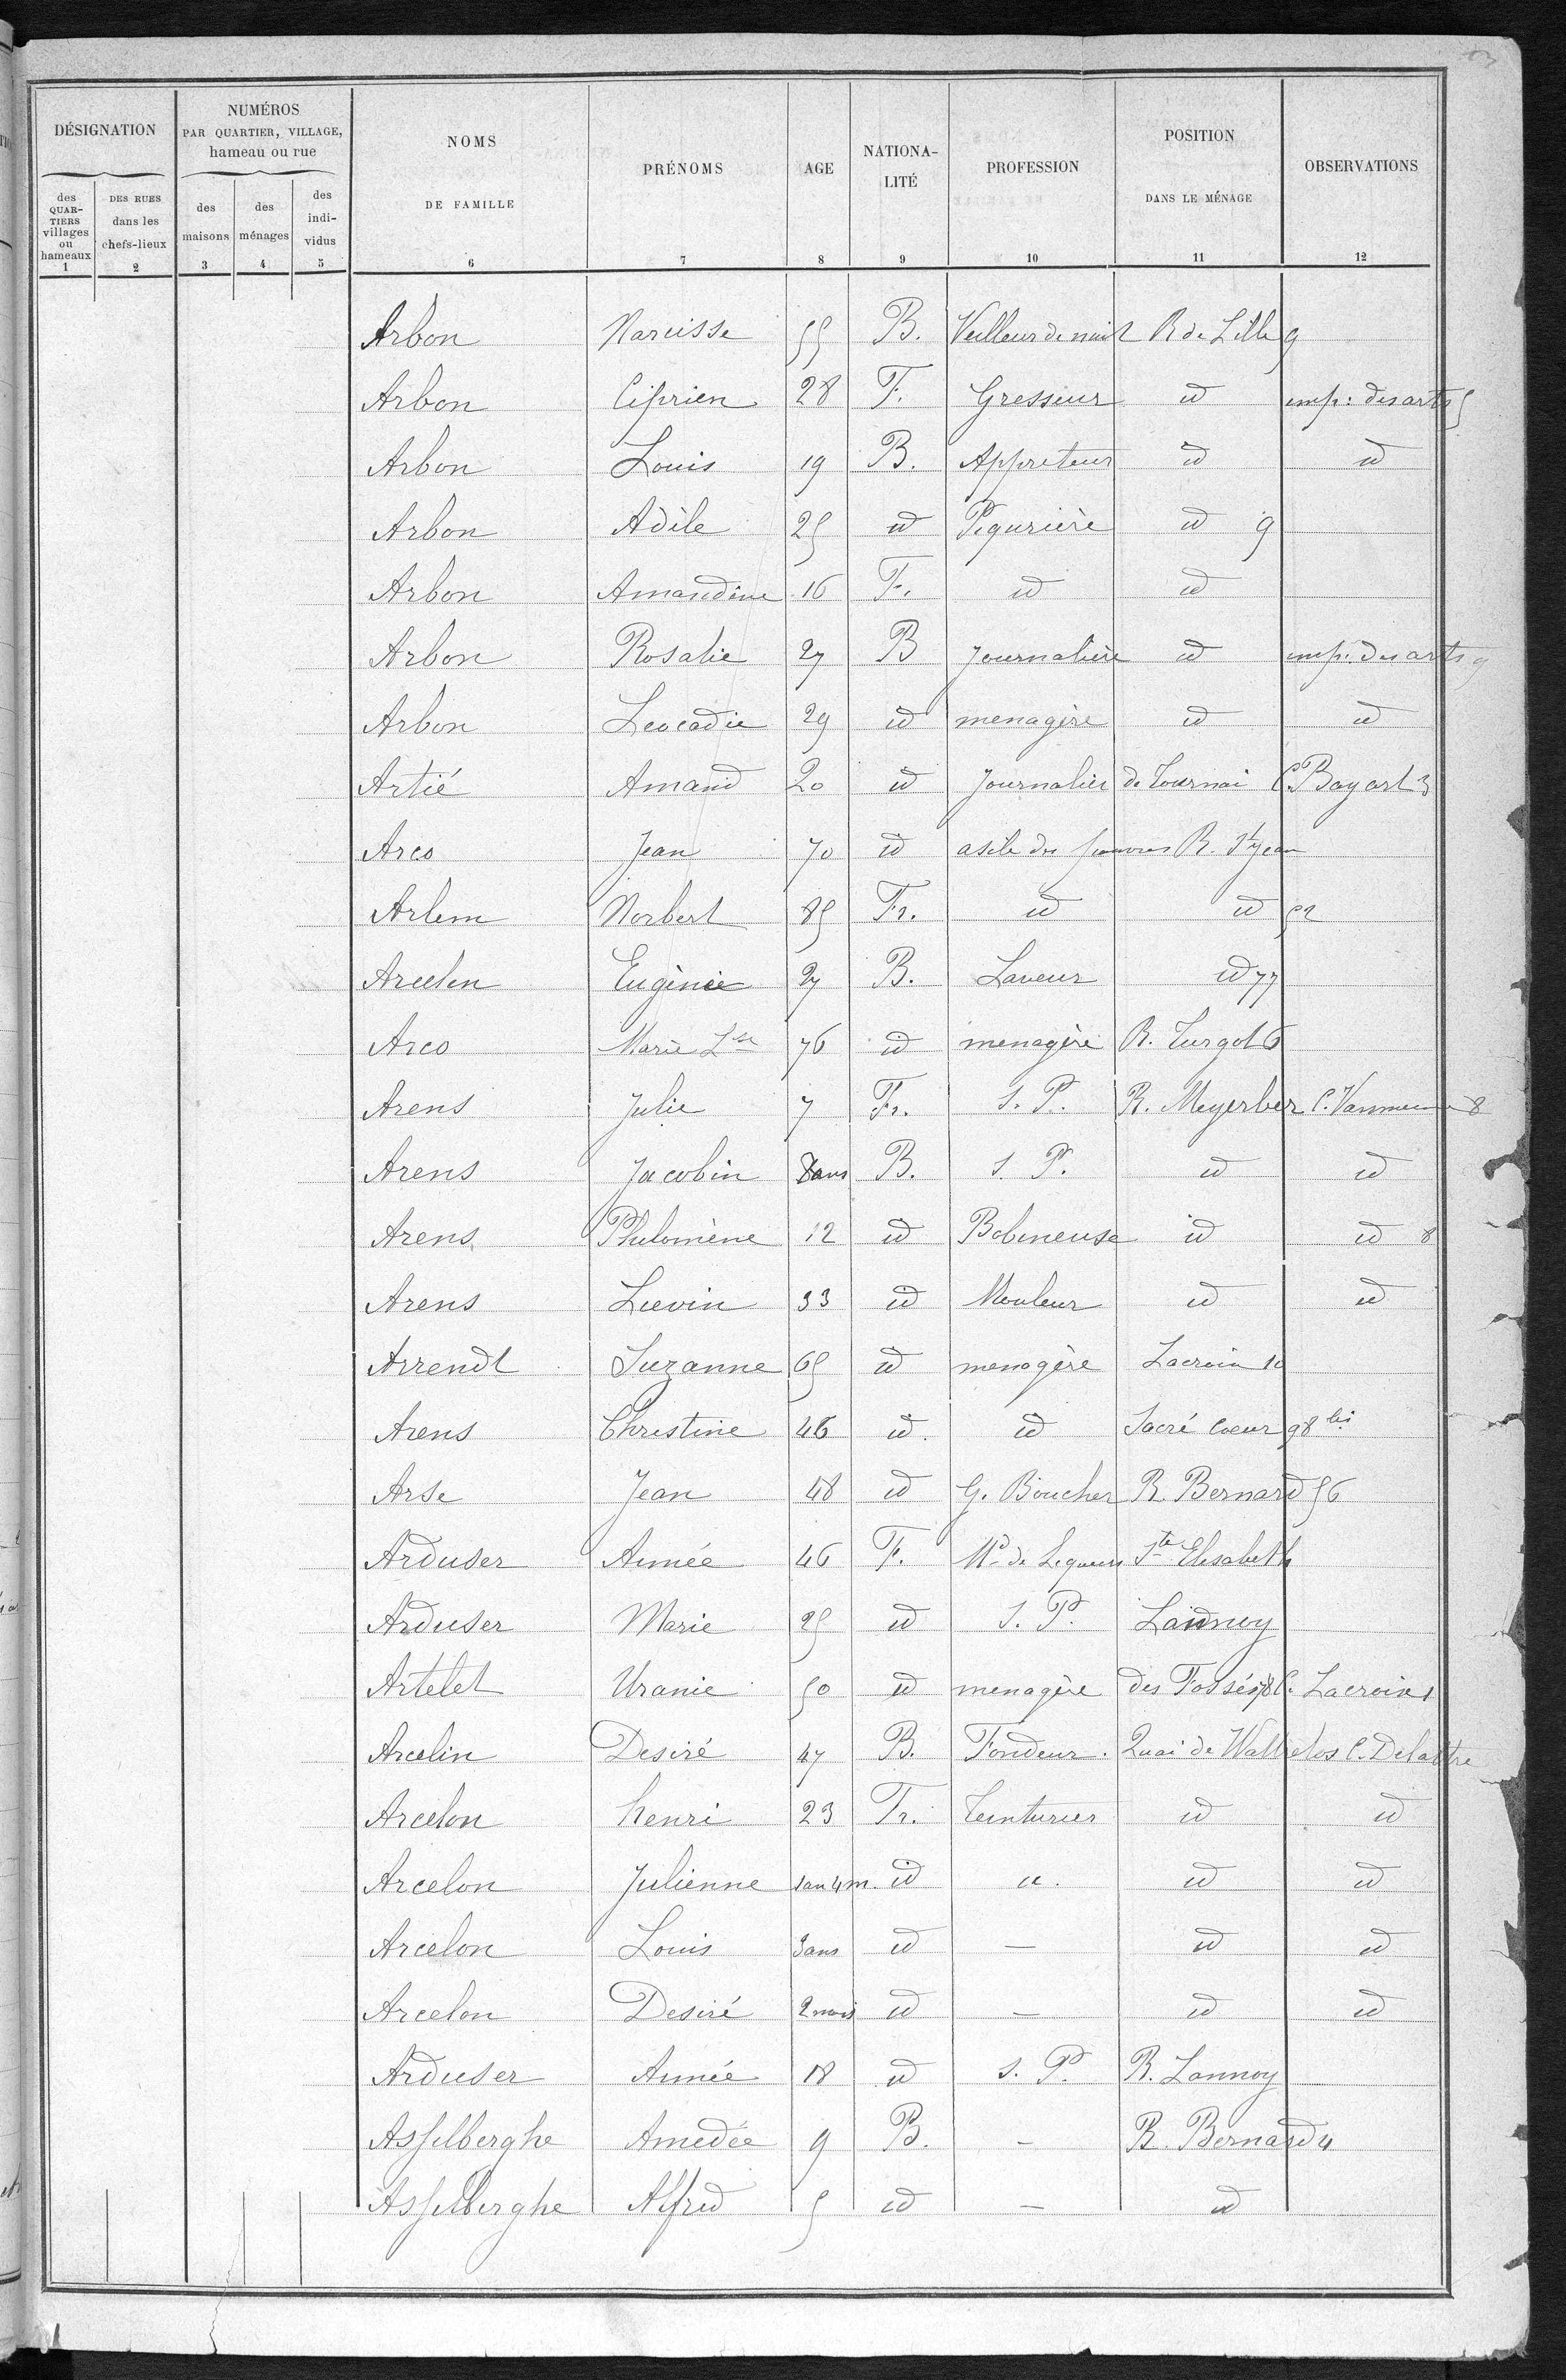 DÉSIGNATION
NUMÉROS
PAR QUARTIER, VILLAGE,
hameau ou rue
NOMS
DE FAMILLE
PRÉNOMS
AGE
NATIONA-
LITÉ
PROFESSION
POSITION
DANS LE MÉNAGE
OBSERVATIONS
des
QUAR-
TIERS
villages
ou
hameaux
DES RUES
dans les
chefs-lieux
des
maisons
des
ménages
des
indi-
vidus
1 2 3 4 5 6 7 8 9 10 11 12
Arbon Narcisse 55 B. Veilleur de nuit R de Lille 9
Arbon Ciprien 28 F. Gresseur id imp: des arts 5
Arbon Louis 19 B. Appreteur id id
Arbon Adèle 25 id Piqurière id 9
Arbon Amandine 16 F. id id
Arbon Rosalie 27 B Journalière id imp: des arts 9
Arbon Leocadie 29 id menagère id id
Artié Amand 20 id Journalier de Tournai C. Bayart 3
Arco Jean 70 id asile des pauvres R. St Jean
Arlem Norbert 85 Fr. id id 52
Arcelen Eugènie 27 B. Laveur id 77
Arco Marie Lse 76 id menagère R. Turgot 6
Arens Julie 7 Fr. S. P. R. Meyerber 8
Arens Jacobin ans B. S. P. id id
Arens Philomène 12 id Bobineuse id id 8
Arens Lievin 33 id Mouleur id id
Arrendt Suzanne 65 id menagère Lacroix 10
Arens Christine 46 id. id Sacré Coeur 98 bis
Arse Jean 48 id G. Boucher R. Bernard 56
Arduser Aimée 46 F. Md de Liqueurs Ste Elisabeth
Arduser Marie 25 id S. P. Lannoy
Artelet Uranie 50 id menagère des Fossés 78 C. Lacroix 1
Arcelin Desiré 47 B. Fondeur. Quai de Wattrelos C. Delattre
Arcelon henri 23 Fr. Teinturier id id
Arcelon Julienne 1 an 4 m. id id id
Arcelon Louis 3 ans id — id id
Arcelon Desiré 2 mois id — id id
Arduser Aimée 18 id S. P. R. Lannoy
Asselberghe Amedée 9 B. — R. Bernard 4
Asselberghe Alfred 5 id — id